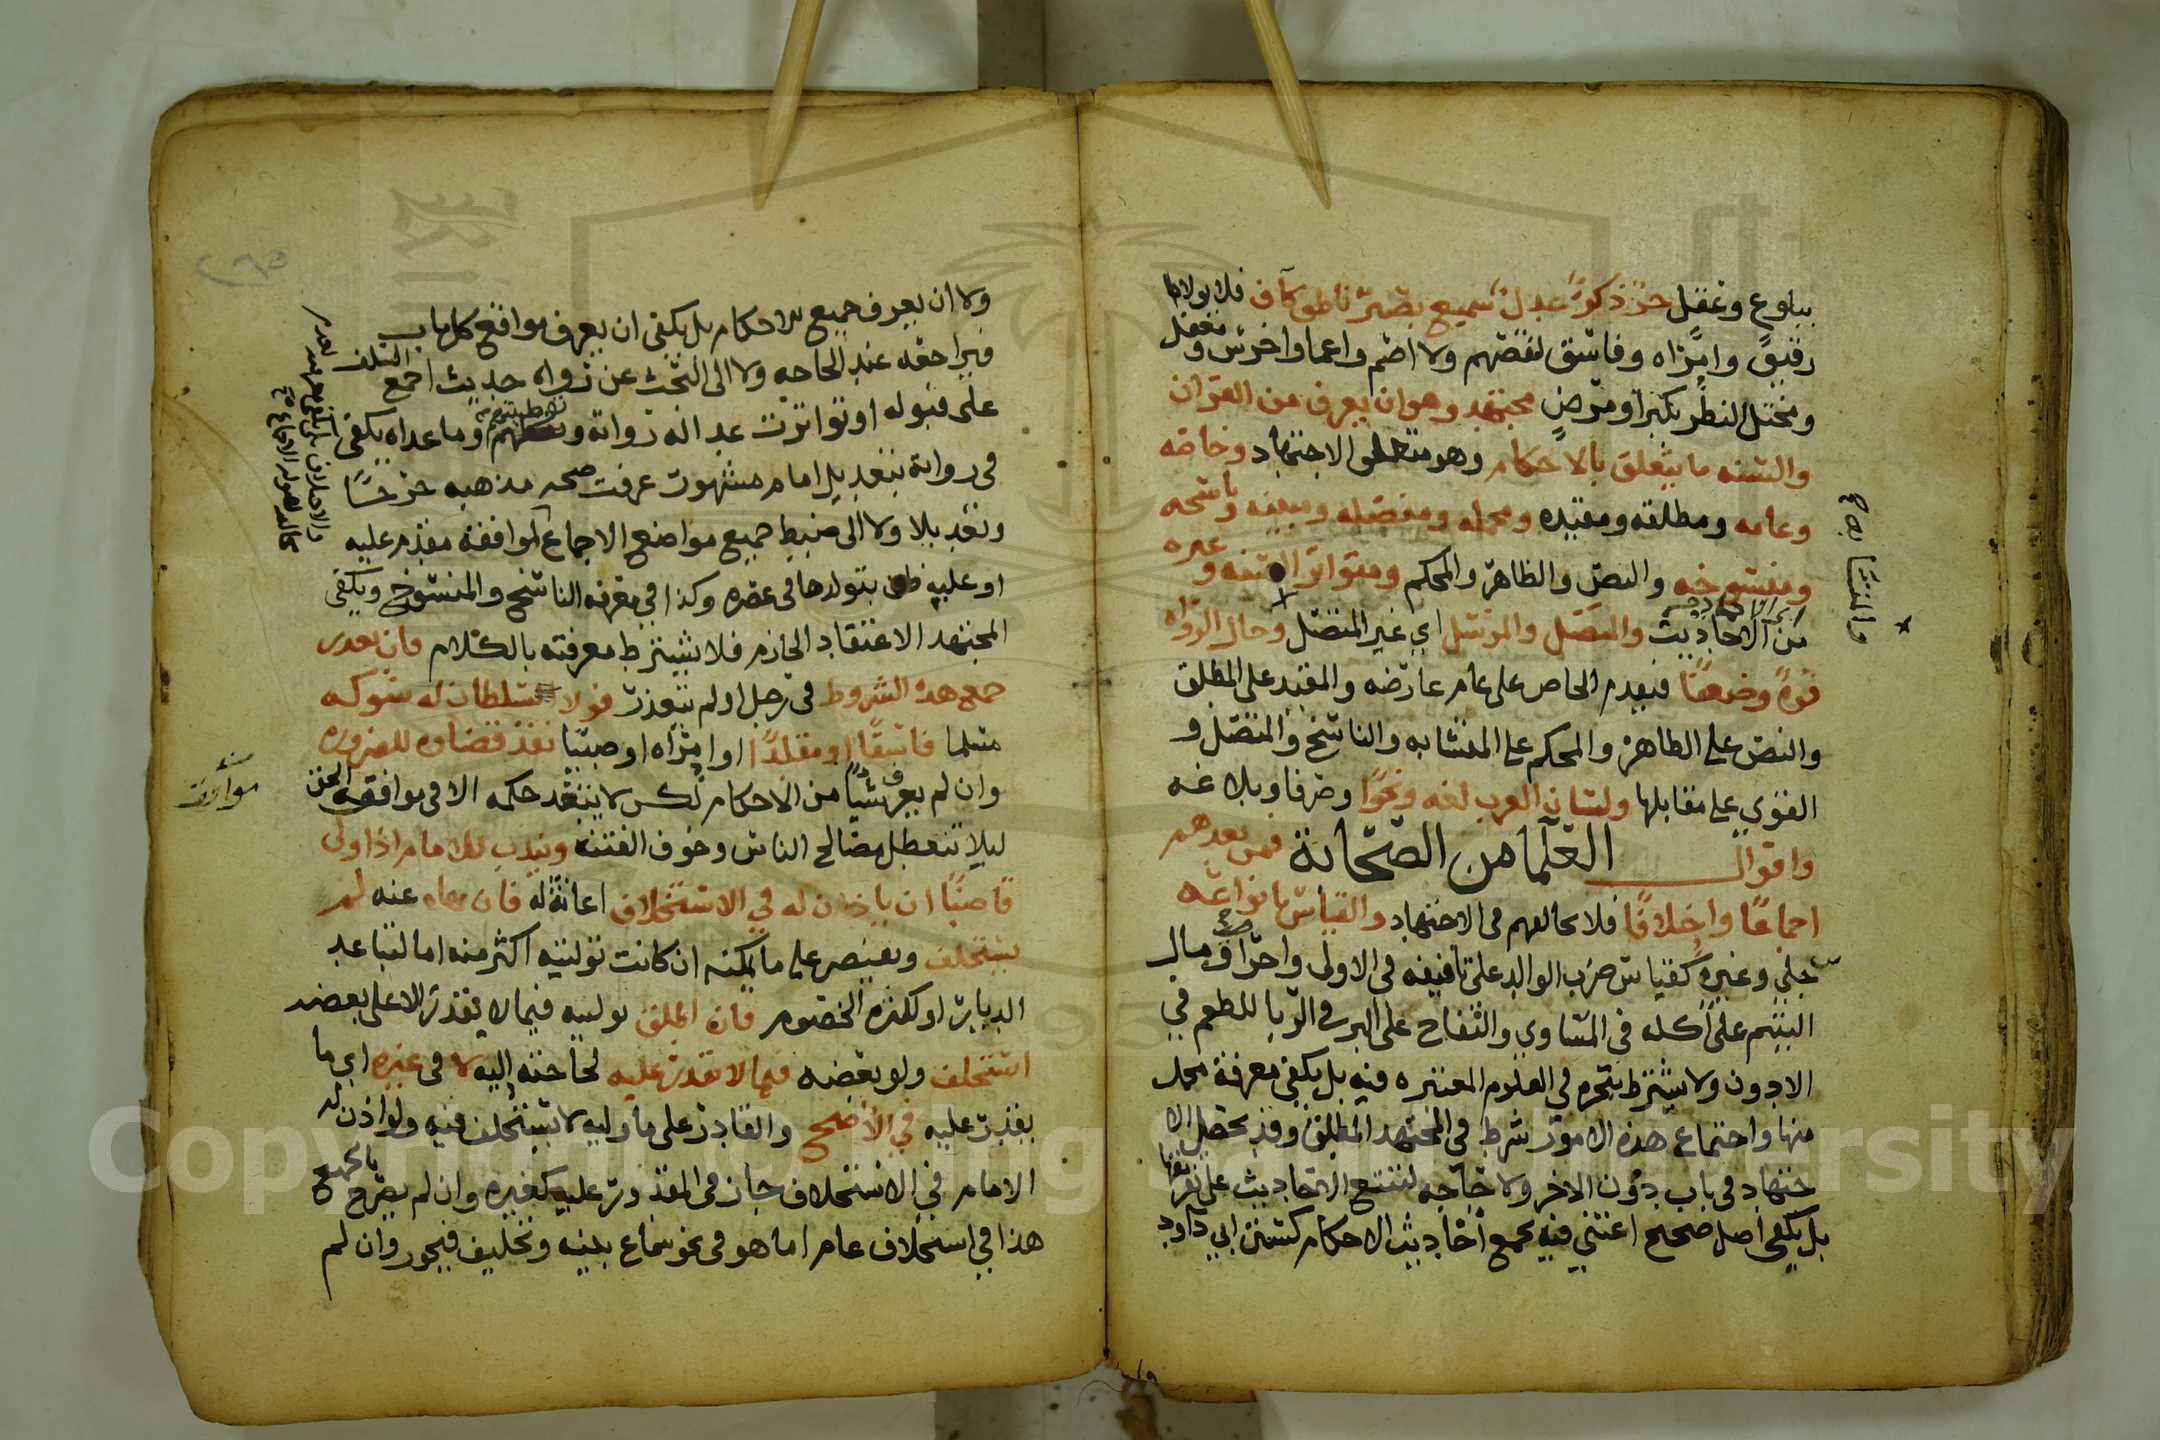 ببلوغ وعقل حرٌّ ذكرٌ عدلٌ سميع بصير ناطق كاف فلا يولا
رقيق وامراه وفاسق لنقصهم ولا اصم واعما واخرس ومغفل
ومختل النظر بكبر او مرض مجتهد وهو ان يعرف من القرآن
والسنه ما يتعلق بالاحكام وهو متعلق الاجتهاد وخاصه
وعامه ومطلقه ومقيده ومجمله ومفصله ومبينه وناسخه
ومنسوخه والنص والظاهر والمحكم ومتواتر السنه وغيره
من الاحاديث والمتصل والمرسل اي غير المتصل وحال الرواه
قوةً وضعفًا فيقدم الخاص على عام عارضه والمقيد على المطلق
والنص على الظاهر والمحكم على المتشابه والناسخ والمتصل و
القوي على مقابلها ولسان العرب لغه ونحوًا وصرفا وبلاغه
واقوال العلما من الصحابة فمن بعدهم
اجماعًا واختلافًا فلا يخالفهم في الاجتهاد والقياس بانواعه
جلي وغيره كقياس ضرب الوالد على تافيفه في الاولى واحراق مال
اليتيم على اكله في المساوي والتفاح على البر في الربا للطعم في
الادون ولا يشترط تبحره في العلوم المعتبره فيه بل يكفي معرفة جمل
منها واجتماع هذه الامور شرط في المجتهد المطلق وقد يحصل الا
جتهاد في باب دون الاخر ولا حاجه لتتبع الاحاديث على تفرقها
بل يكفي اصل صحيح اعتني فيه بجمع احاديث الاحكام كسنن ابي داود
والمتشابه صح
ولا ان يعرف جميع الاحكام بل يكفي ان يعرف مواقع كل باب
فيراجعه عند الحاجه ولا الى البحث عن رواه حديث اجمع السلف
على قبوله او تواترت عداله رواته وضبطهم وما عداه يكفي
في رواته بتعديل امام مشهور عرفت صحه مذهبه جرحًا
وتعديلا ولا الى ضبط جميع مواضع الاجماع كموافقة مقدم عليه
او عليه ظن بتولدها في عصره وكذا في معرفه الناسخ والمنسوخ ويكفي
المجتهد الاعتقاد الجازم فلا يشترط معرفته بالكلام فان تعذر
جمع هذه الشروط في رجل او لم يتعذر فولا سلطان له شوكه
مسلما فاسقًا او مقلدًا او امراه او صبيا نفذ قضاوه للضروره
وان لم يعرف شيأ من الاحكام لكن لا ينفذ حكمه الا في موافقه الحق
ليلا تتعطل مصالح الناس وخوف الفتنه ويندب للامام اذا ولى
قاضيًا ان ياذن له في الاستخلاف اعانة له فان نهاه عنه لم
يستخلف ويقتصر على ما يمكنه ان كانت توليته اكثر منه اما لتباعد
الديار او لكثره الخصوم فان اطلق توليته فيما لا يقدر الا على بعضه
استخلف ولو بعضه فيما لا يقدر عليه لحاجته اليه لا في غيره اي ما
يقدر عليه في الاصح والقادر على ما وليه لا يستخلف فيه ولو اذن له
الامام في الاستخلاف جاز في المقدور عليه كغيره وان لم يصرح بالجميع
هذا في استخلاف عام اما هو في نحو سماع بينه وتحليف فيجوز وان لم